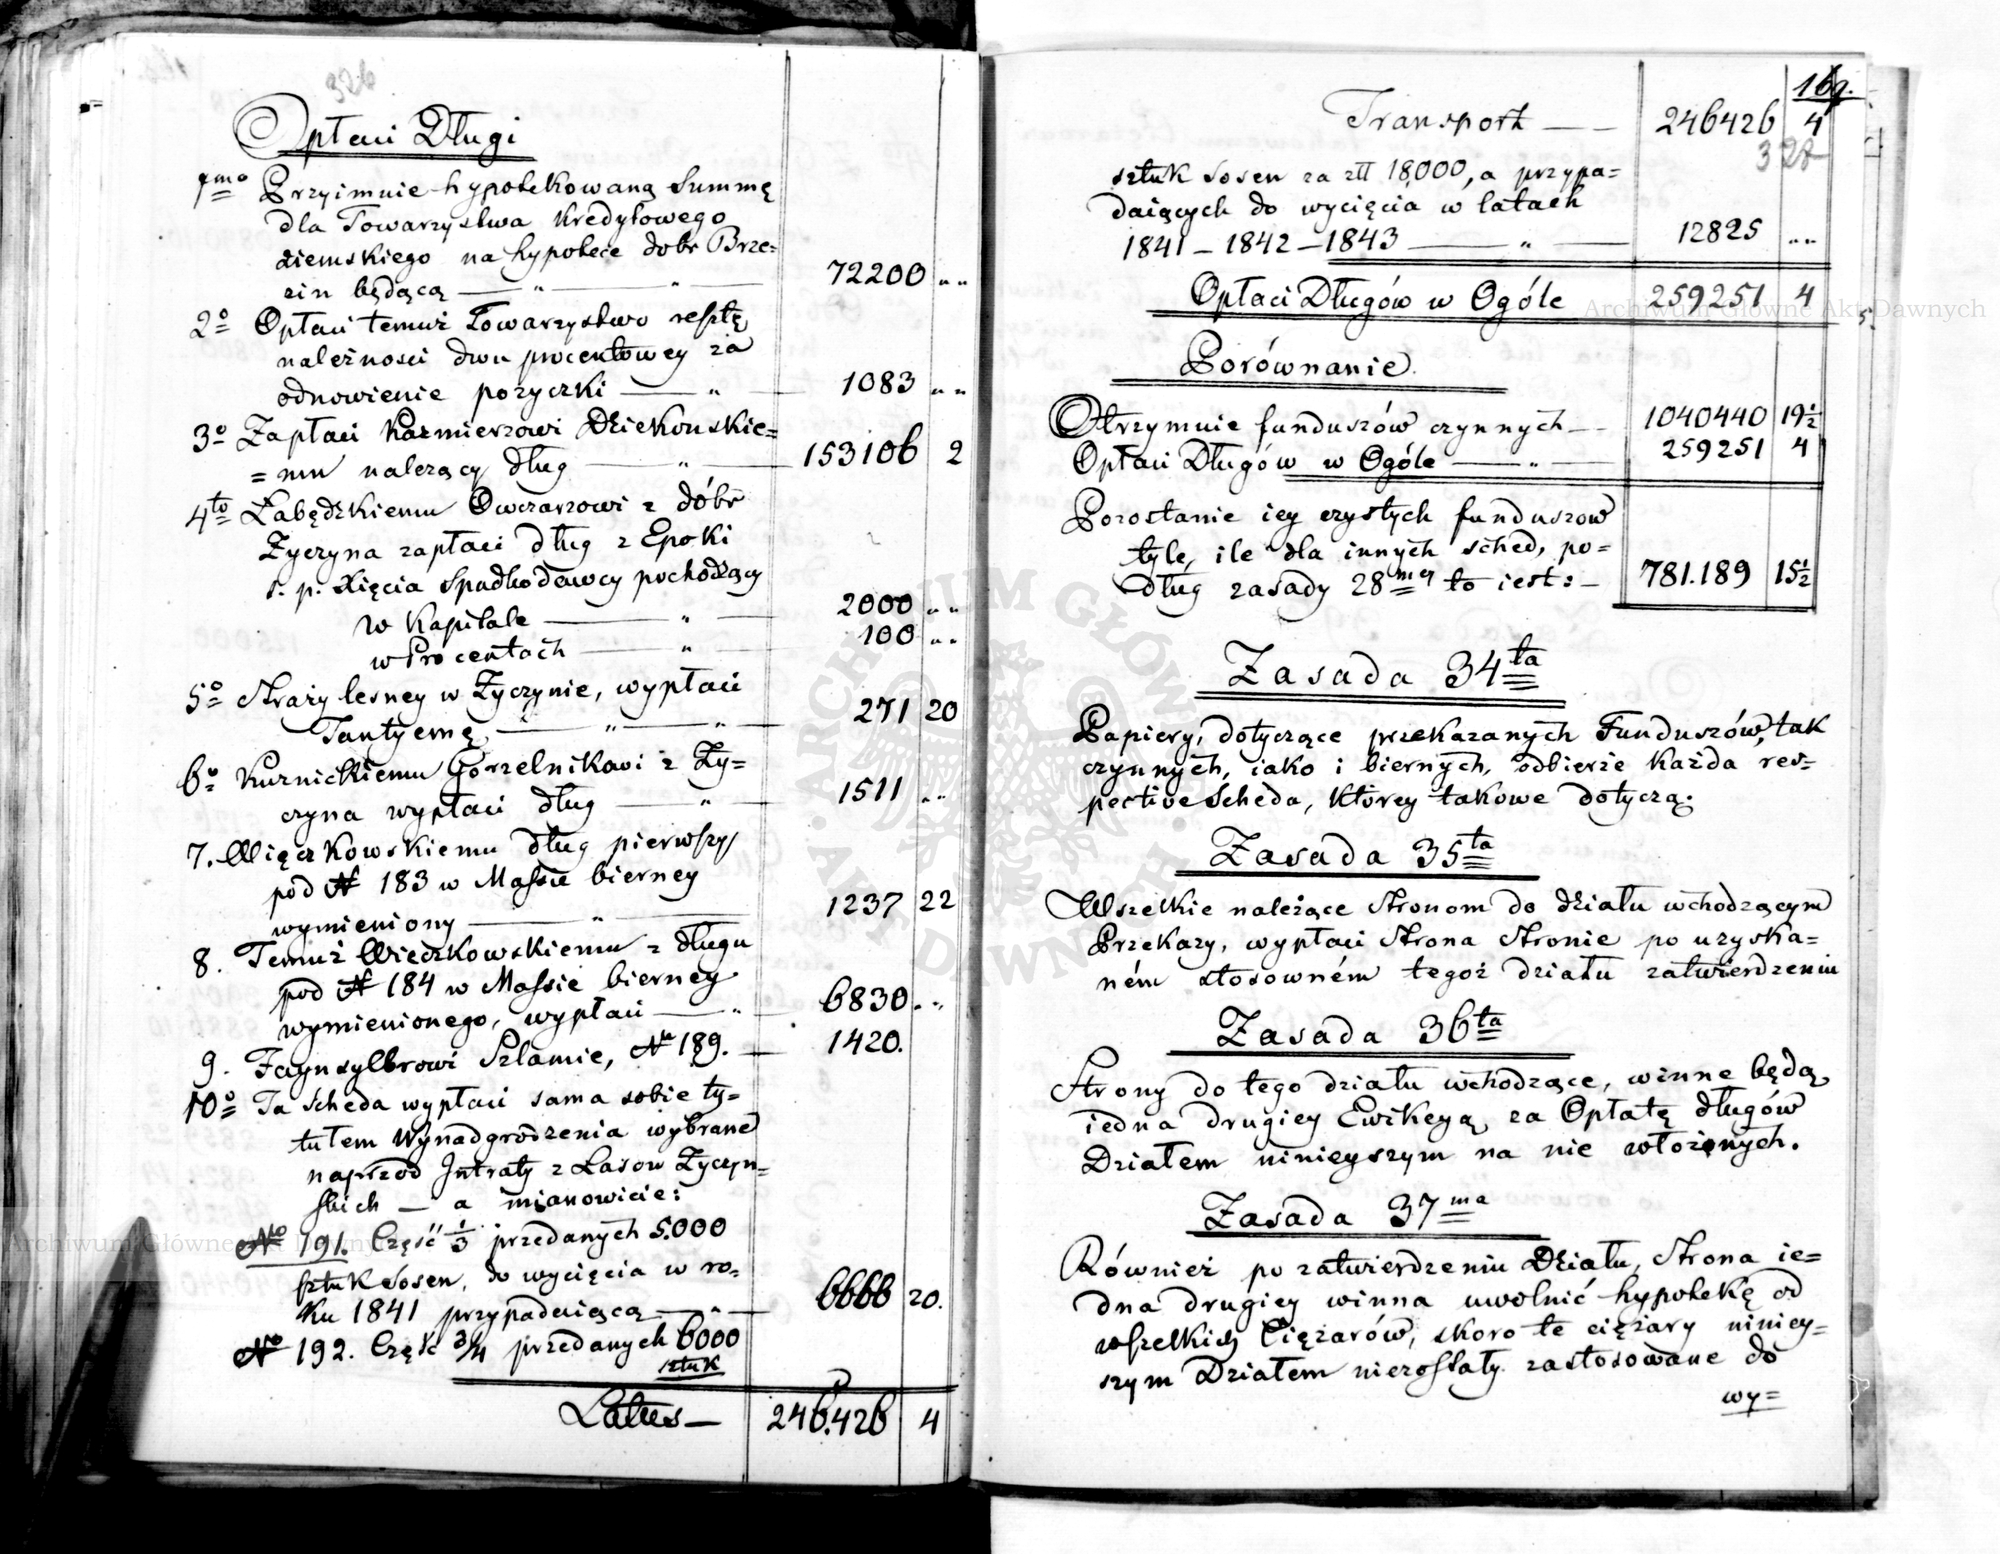 326
Opłaci Długi
1mo Przyimuie hypotekowaną Summę
dla Towarzystwa Kredytowego
Ziemskiego na hypotece dobr Brze=
zin będącą — " — " — 72200 " "
2o Opłaci temuż Towarzystwu resztę
należności dwu procentowey za
odnowienie pożyczki — " — 1083 " "
3o Zapłaci Kazmierzowi Dziekonskie=
=mu należący dług — " — 153106 2
4to Łabędzkiemu Owczarzowi z dóbr
Życzyna zapłaci dług z Epoki
ś. p. Xięcia Spadkodawcy pochodzący
w Kapitale — " — 2000 " "
w Procentach — " — 100 " "
5o Straży lesney w Życzynie, wypłaci
Tantyemę — " — " — 271 20
6o Kurnickiemu Gorzelnikowi z Ży=
czyna wypłaci dług — " — 1511 " "
7. Więczkowskiemu dług pierwszy
pod N 183 w Massie bierney
wymieniony — " — 1237 22
8. Temuż Wieczkowskiemu z długu
pod N 184 w Massie bierney
wymienionego, wypłaci — " — 6830 . "
9. Faynsylbrowi Szlamie, No 189. — 1420.
10o Ta Scheda wypłaci sama sobie ty=
tułem Wynadgrodzenia wybrane
naprzod Intraty z Lasow Życzyn=
skich — a mianowicie:
No 191. Część 1/3 przedanych 5.000
sztuk Sosen, do wycięcia w ro=
ku 1841 przypadaiącą — " — 6666 20.
No 192. Część 3/4 przedanych 6000
sztuk
Latus — 246.426 4
169.
Transport — — 246426 4
328
sztuk Sosen za złł 18,000, a przypa=
daiących do wycięcia w latach
1841 – 1842 – 1843 — " — 12825 " "
Opłaci Długów w Ogóle 259251 4
Porównanie.
Otrzymuie funduszów czynnych — 1040440 19 1/2
Opłaci Długów w Ogóle — " — 259251 4
Pozostanie iey czystych funduszow
tyle, ile dla innych sched, po=
dług zasady 28mey to iest: — 781.189 15 1/2
Zasada 34ta
Papiery, dotyczące przekazanych Funduszów, tak
czynnych, iako i biernych, odbierze każda res=
pective Scheda, którey takowe dotyczą.
Zasada 35ta
Wszelkie należące Stronom do działu wchodzącym
Przekazy, wypłaci Strona Stronie po uzyska=
ném stosowném tegoż działu zatwierdzeniu
Zasada 36ta
Strony do tego działu wchodzące, winne będą
iedna drugiey Ewikcyą za Opłatę długów
Działem ninieyszym na nie włożonych.
Zasada 37ma
Również po zatwierdzeniu Działu, Strona ie=
dna drugiey winna uwolnić hypotekę od
wszelkich Ciężarów, skoro te ciężary niniey=
szym Działem niezostały zastosowane do
wy=
Archiwum Główne Akt Dawnych
Archiwum Główne Akt Dawnych
ARCHIWUM GŁÓWNE AKT DAWNYCH